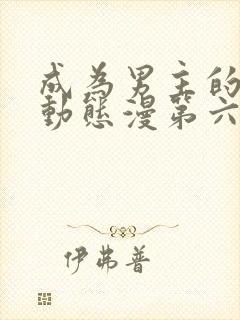 成為男主的
動態漫第六
伊弗普